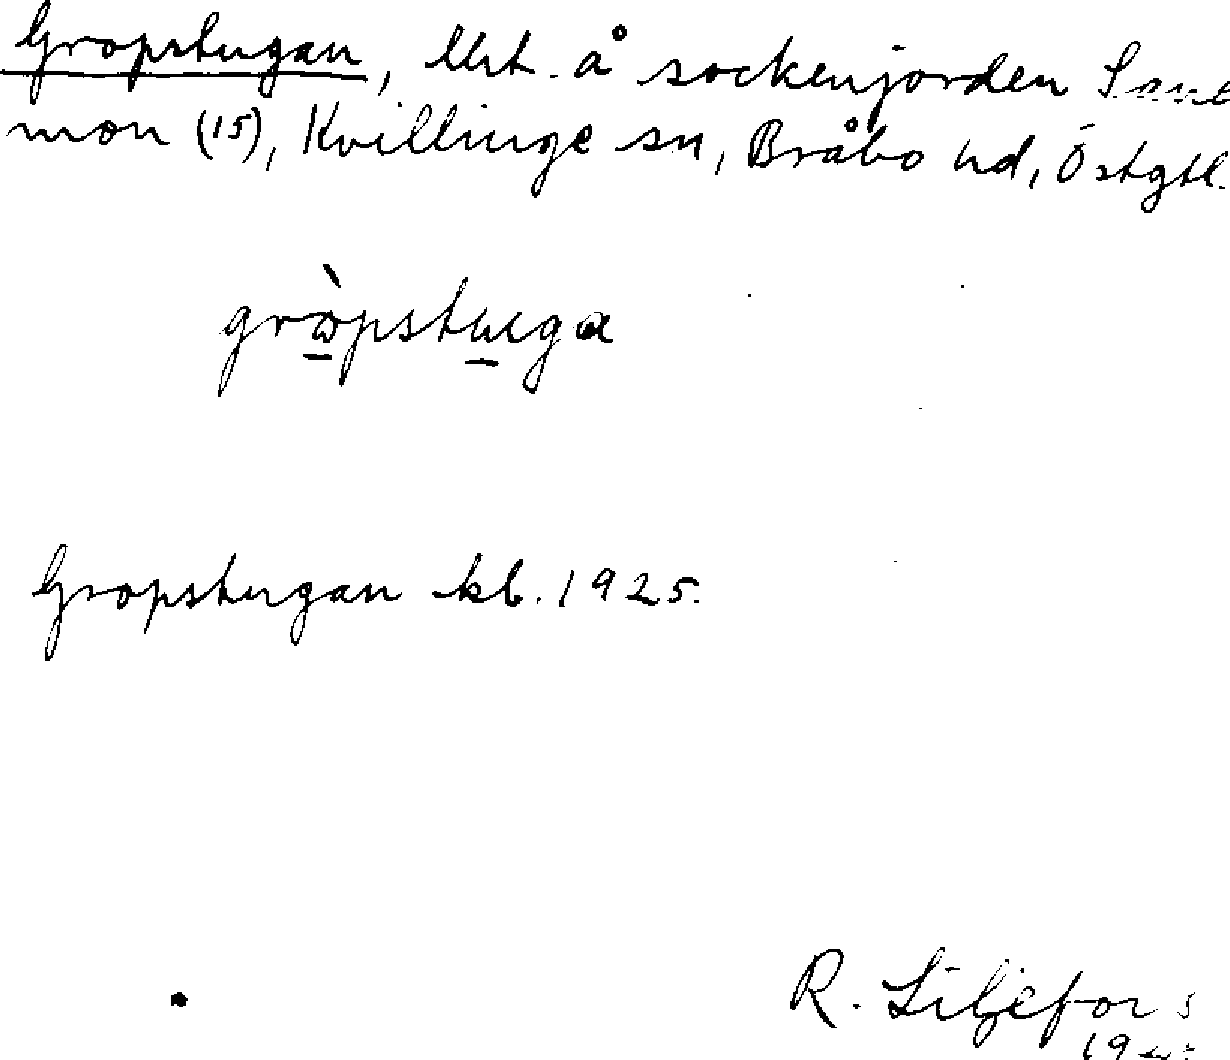 Gropstugan, lht. å sockenjorden Sand
mon (15), Kvillinge sn, Bråbo hd, Östgtl.
gròpstuga
Gropstugan kb. 1925.
R. Liljefors